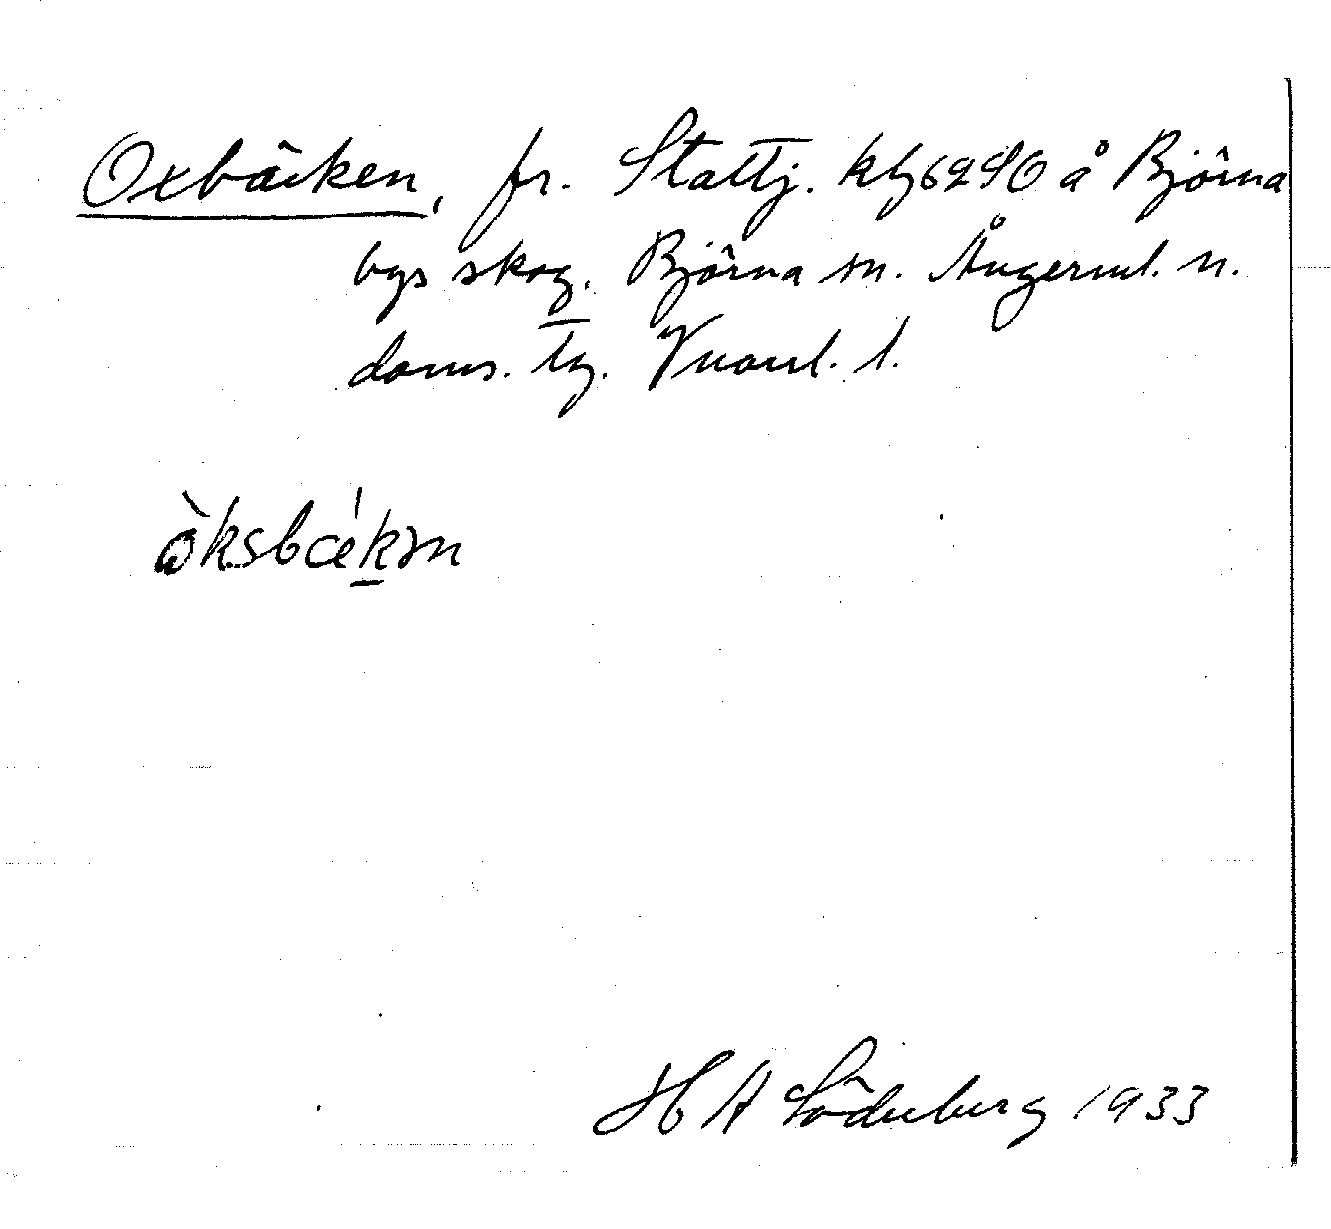 Oxbäcken, fr. Stattj. kbl 62 SO å Björna
bys skog. Björna sn. Ångerml. n.
doms. tg. Vnorrl. l.
ɷ̀ksbæ̍kən
H A Söderberg 1933